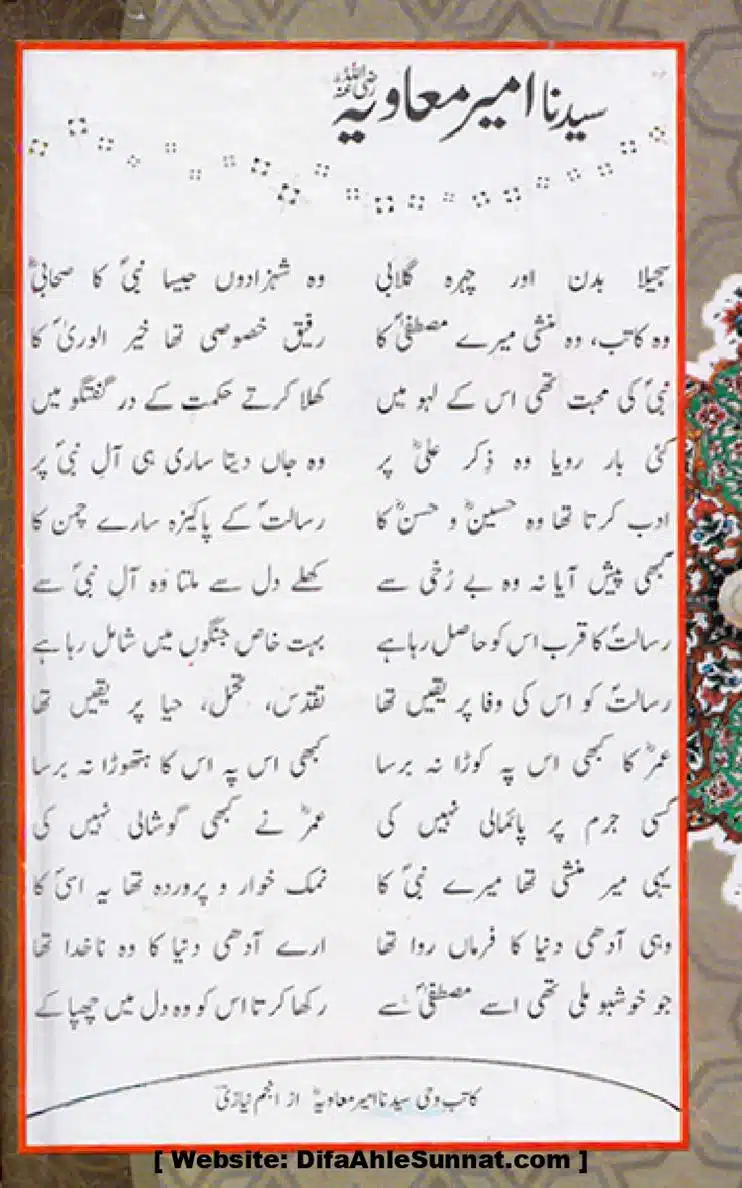 سیدنا امیر معاویہ رضی اللہ عنہ
سجیلا بدن اور چہرہ گلابی وہ شہزادوں جیسا نبیؐ کا صحابیؓ
وہ کاتب، وہ منشی میرے مصطفیٰؐ کا رفیق خصوصی تھا خیر الوریٰؐ کا
نبیؐ کی محبت تھی اس کے لہو میں کھلا کرتے حکمت کے در گفتگو میں
کئی بار رویا وہ ذِکر علیؓ پر وہ جاں دیتا ساری ہی آلِ نبیؐ پر
ادب کرتا تھا وہ حسینؓ و حسنؓ کا رسالتؐ کے پاکیزہ سارے چمن کا
کبھی پیش آیا نہ وہ بے رُخی سے کھلے دل سے ملتا وہ آلِ نبیؐ سے
رسالتؐ کا قرب اس کو حاصل رہا ہے بہت خاص جنگوں میں شامل رہا ہے
رسالتؐ کو اس کی وفا پر یقیں تھا تقدّس، تحمّل، حیا پر یقیں تھا
عمرؓ کا کبھی اس پہ کوڑا نہ برسا کبھی اس پہ اس کا ہتھوڑا نہ برسا
کسی جرم پر پائمالی نہیں کی عمرؓ نے کبھی گوشالی نہیں کی
یہی میر منشی تھا میرے نبیؐ کا نمک خوار و پروردہ تھا یہ اسیؐ کا
وہی آدھی دنیا کا فرماں روا تھا ارے آدھی دنیا کا وہ ناخدا تھا
جو خوشبو ملی تھی اسے مصطفیٰؐ سے رکھا کرتا اس کو وہ دل میں چھپا کے
کاتب وحی سیدنا امیر معاویہؓ از انجم نیازیؔ
[ Website: DifaAhleSunnat.com ]